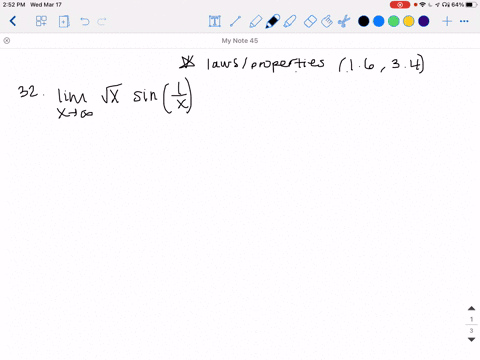 2:52 PM Wed Mar 17
64%
My Note 45
☆ laws/properties (1.6, 3.4)
32. lim x→∞ √x sin(1/x)
1
3